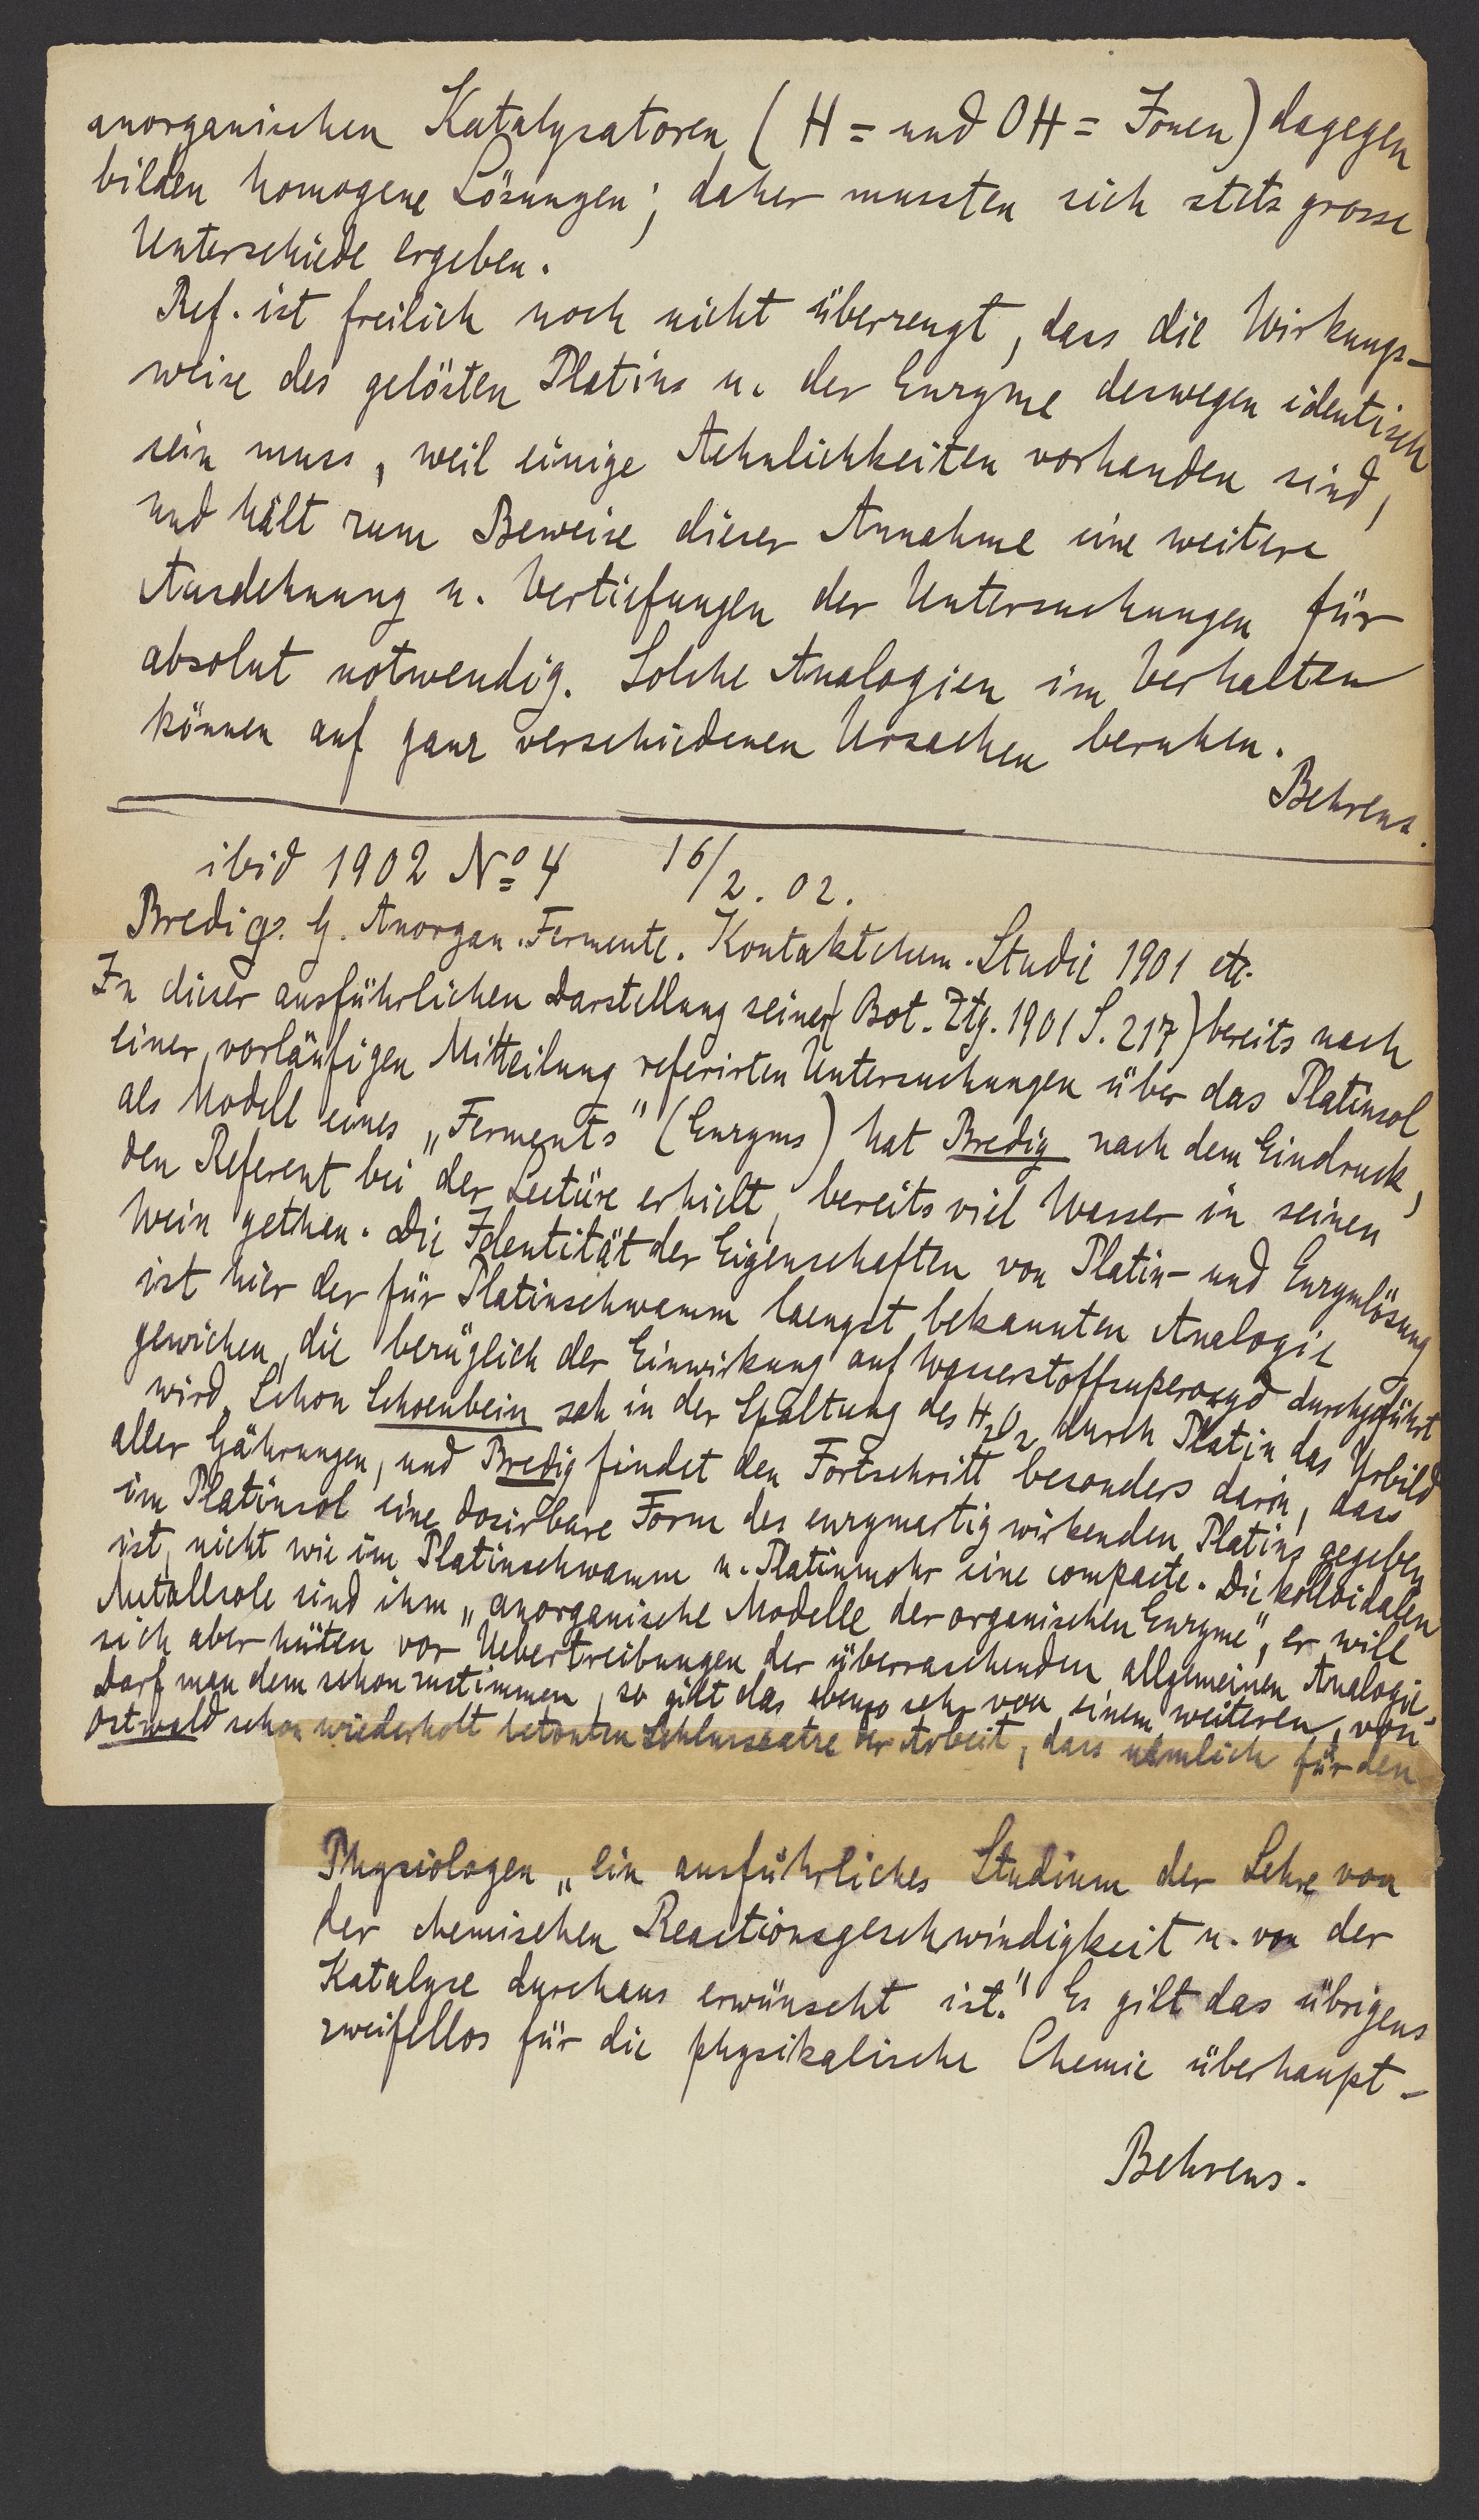 anorganischen Katalysatoren (H= und OH= Jonen) dagegen
bilden homogene Lösungen; daher mussten sich stets grosse
Unterschiede ergeben.
Ref. ist freilich noch nicht überzeugt, dass die Wirkungs-
weise des gelösten Platins u. der Enzyme deswegen identisch
sein muss, weil einige Aehnlichkeiten vorhanden sind,
und hält zum Beweise dieser Annahme eine weitere
Ausdehnung u. Vertiefungen der Untersuchungen für
absolut notwendig. Solche Analogien im Verhalten
können auf ganz verschiedenen Ursachen beruhen.
Behrens.
ibid 1902 No 4 16/2. 02.
Bredig. G. Anorgan. Fermente. Kontaktchem. Studie 1901 etc.
In dieser ausführlichen Darstellung seiner (Bot. Ztg. 1901 S. 217) bereits nach
einer vorläufigen Mitteilung referirten Untersuchungen über das Platinsol
als Modell eines „Ferments" (Enzyms) hat Bredig nach dem Eindruck,
den Referent bei der Lectüre erhielt, bereits viel Wasser in seinen
Wein gethan. Die Identität der Eigenschaften von Platin- und Enzymlösung
ist hier der für Platinschwamm laengst bekannten Analogie
gewichen, die bezüglich der Einwirkung auf Wasserstoffsuperoxyd durchgeführt
wird. Schon Schoenbein sah in der Spaltung des H2O2 durch Platin das Urbild
aller Gährungen, und Bredig findet den Fortschritt besonders darin, dass
im Platinsol eine dosirbare Form des enzymartig wirkenden Platins gegeben
ist, nicht wie im Platinschwamm u. Platinmohr eine compacte. Die kolloidalen
Metallsole sind ihm „anorganische Modelle der organischen Enzyme", er will
sich aber hüten vor Uebertreibungen der überraschenden allgemeinen Analogie.
Darf man dem schon zustimmen, so gilt das ebenso sehr von einem weiteren, von
Ostwald schon wiederholt betonten Schlusssatze der Arbeit, dass nämlich für den
Physiologen „ein ausführliches Studium der Lehre von
der chemischen Reactionsgeschwindigkeit u. von der
Katalyse durchaus erwünscht ist." Es gilt das übrigens
zweifellos für die physikalische Chemie überhaupt-
Behrens.